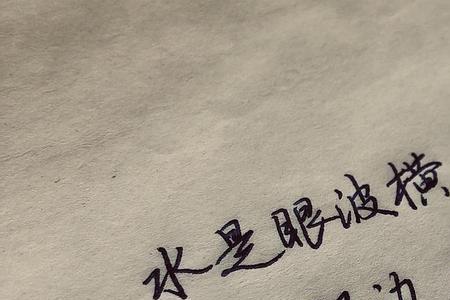 水是眼波横